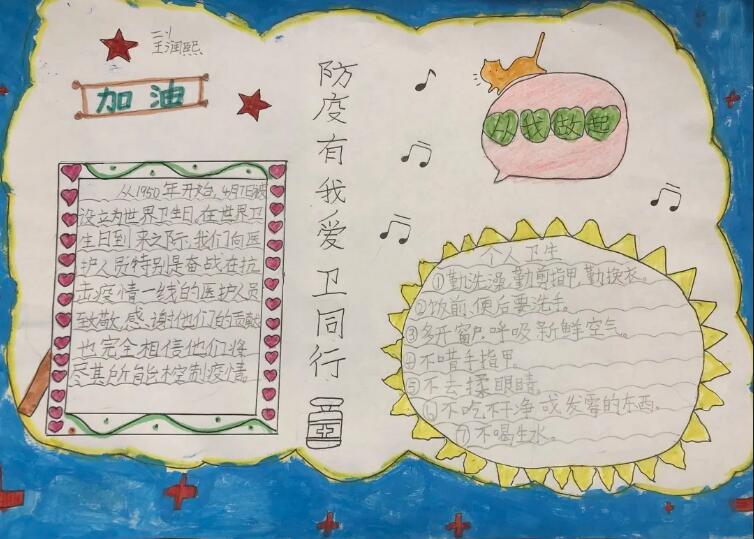 王润熙
加油
防疫有我爱卫同行
从我做起
从1950年开始,4月7日被
设立为世界卫生日,在世界卫
生日到来之际,我们向医
护人员特别是奋战在抗
击疫情一线的医护人员
致敬,感谢他们的贡献
也完全相信他们将
尽其所能控制疫情。
个人卫生
①勤洗澡,勤剪指甲,勤换衣。
②饭前、便后要洗手。
③多开窗户,呼吸新鲜空气。
④不啃手指甲。
⑤不去揉眼睛。
⑥不吃不干净或发霉的东西。
⑦不喝生水。